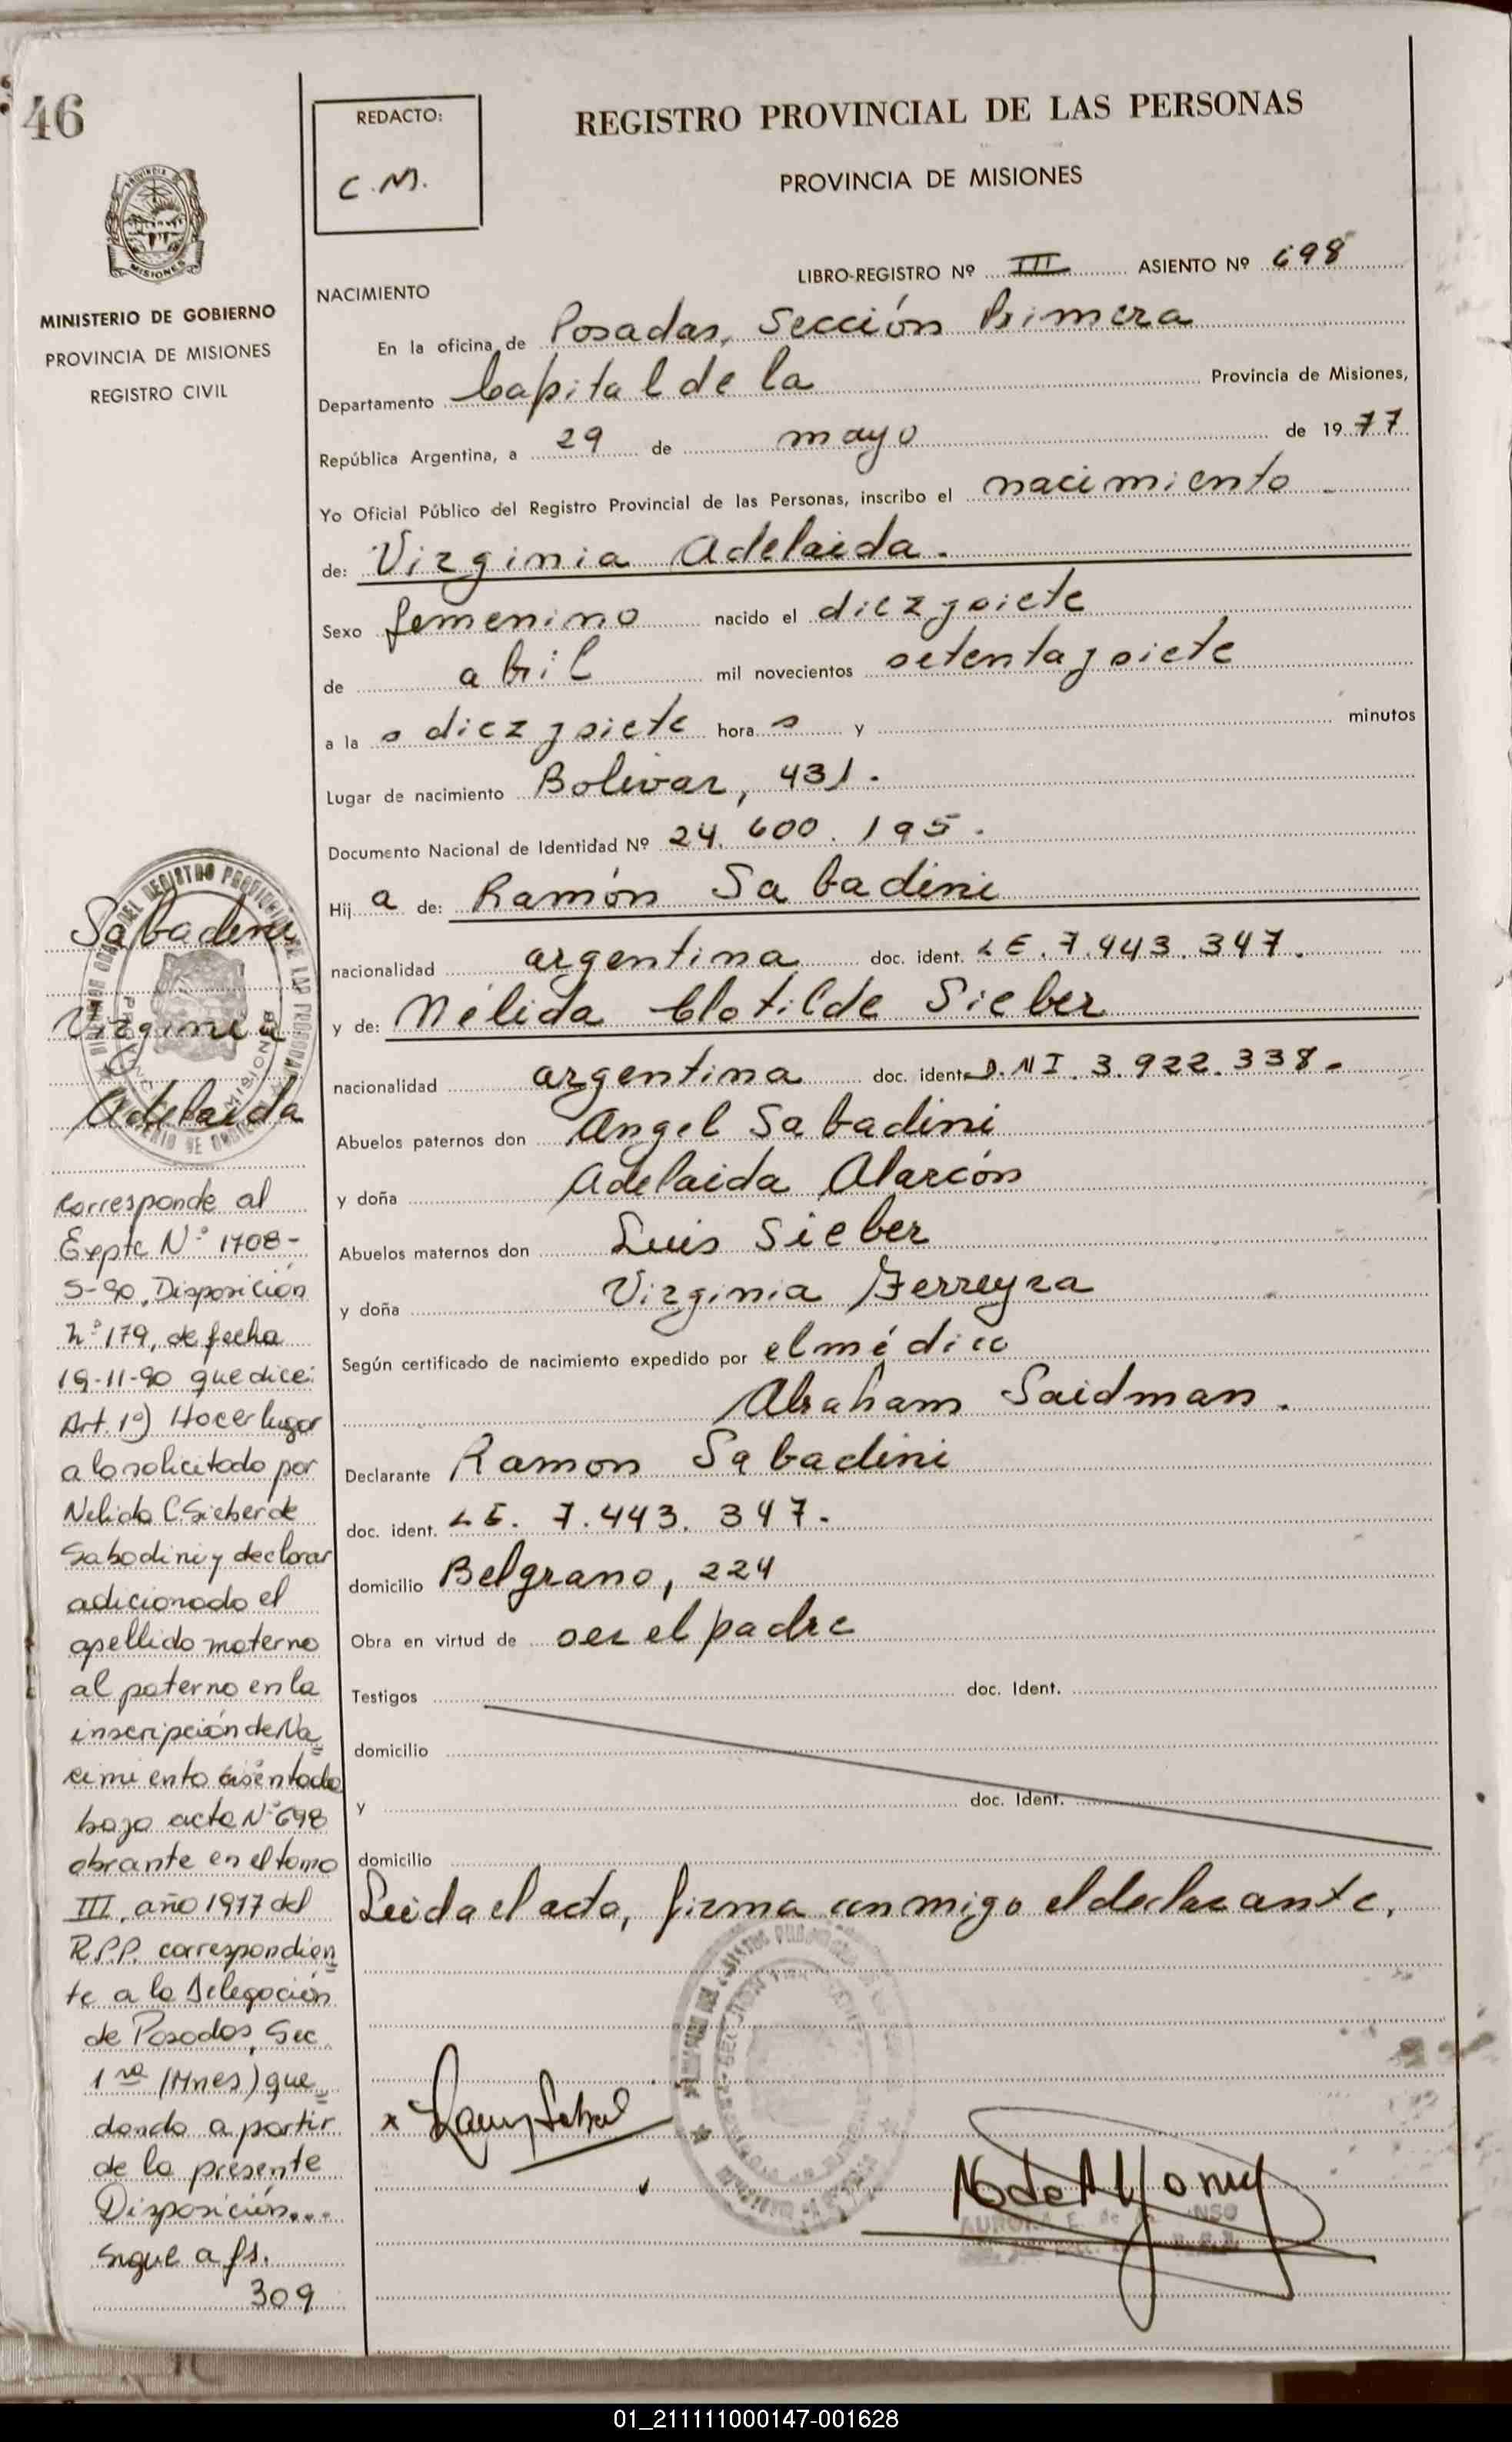 46
REDACTO:
C.M.
REGISTRO PROVINCIAL DE LAS PERSONAS
PROVINCIA DE MISIONES
MISIONES
MINISTERIO DE GOBIERNO
PROVINCIA DE MISIONES
REGISTRO CIVIL
LIBRO-REGISTRO Nº III ASIENTO Nº 698
NACIMIENTO
En la oficina de Posadas, Sección Primera
Departamento Capital de la Provincia de Misiones,
República Argentina, a 29 de mayo de 1977
Yo Oficial Público del Registro Provincial de las Personas, inscribo el nacimiento
de: Virginia Adelaida.
Sexo femenino nacido el diez y siete
de abril mil novecientos setenta y siete
a la s diez y siete hora s y minutos
Lugar de nacimiento Bolivar, 431.
Documento Nacional de Identidad Nº 24.600.195.
Hij a de: Ramón Sabadini
nacionalidad argentina doc. ident. LE. 7.443.347.
y de: Nélida Clotilde Sieber
nacionalidad argentina doc. ident. D.NI. 3.922.338.
Abuelos paternos don Angel Sabadini
y doña Adelaida Alarcón
Abuelos maternos don Luis Sieber
y doña Virginia Ferreyra
Según certificado de nacimiento expedido por el médico
Abraham Saidman.
Declarante Ramon Sabadini
doc. ident. LE. 7.443.347.
domicilio Belgrano, 224
Obra en virtud de ser el padre
Testigos doc. Ident.
domicilio
y doc. Ident.
domicilio
Leida el acta, firma conmigo el declarante.
AURORA E. de
Sabadini
Virginia
Adelaida
Corresponde al
Expte Nº 1708-
S-90, Disposición
Nº 179, de fecha
19-11-90 que dice:
Art. 1º) Hacer lugar
a lo solicitado por
Nelida C. Sieber de
Sabadini y declarar
adicionado el
apellido materno
al paterno en la
inscripción de Na=
cimiento asentada
bajo acta Nº 698
obrante en el tomo
III, año 1977 del
R.P.P. correspondien=
te a la Delegación
de Posadas, Sec.
1ra (Mnes) que=
dando a partir
de la presente
Disposición...
sigue a fs.
309
01_211111000147-001628